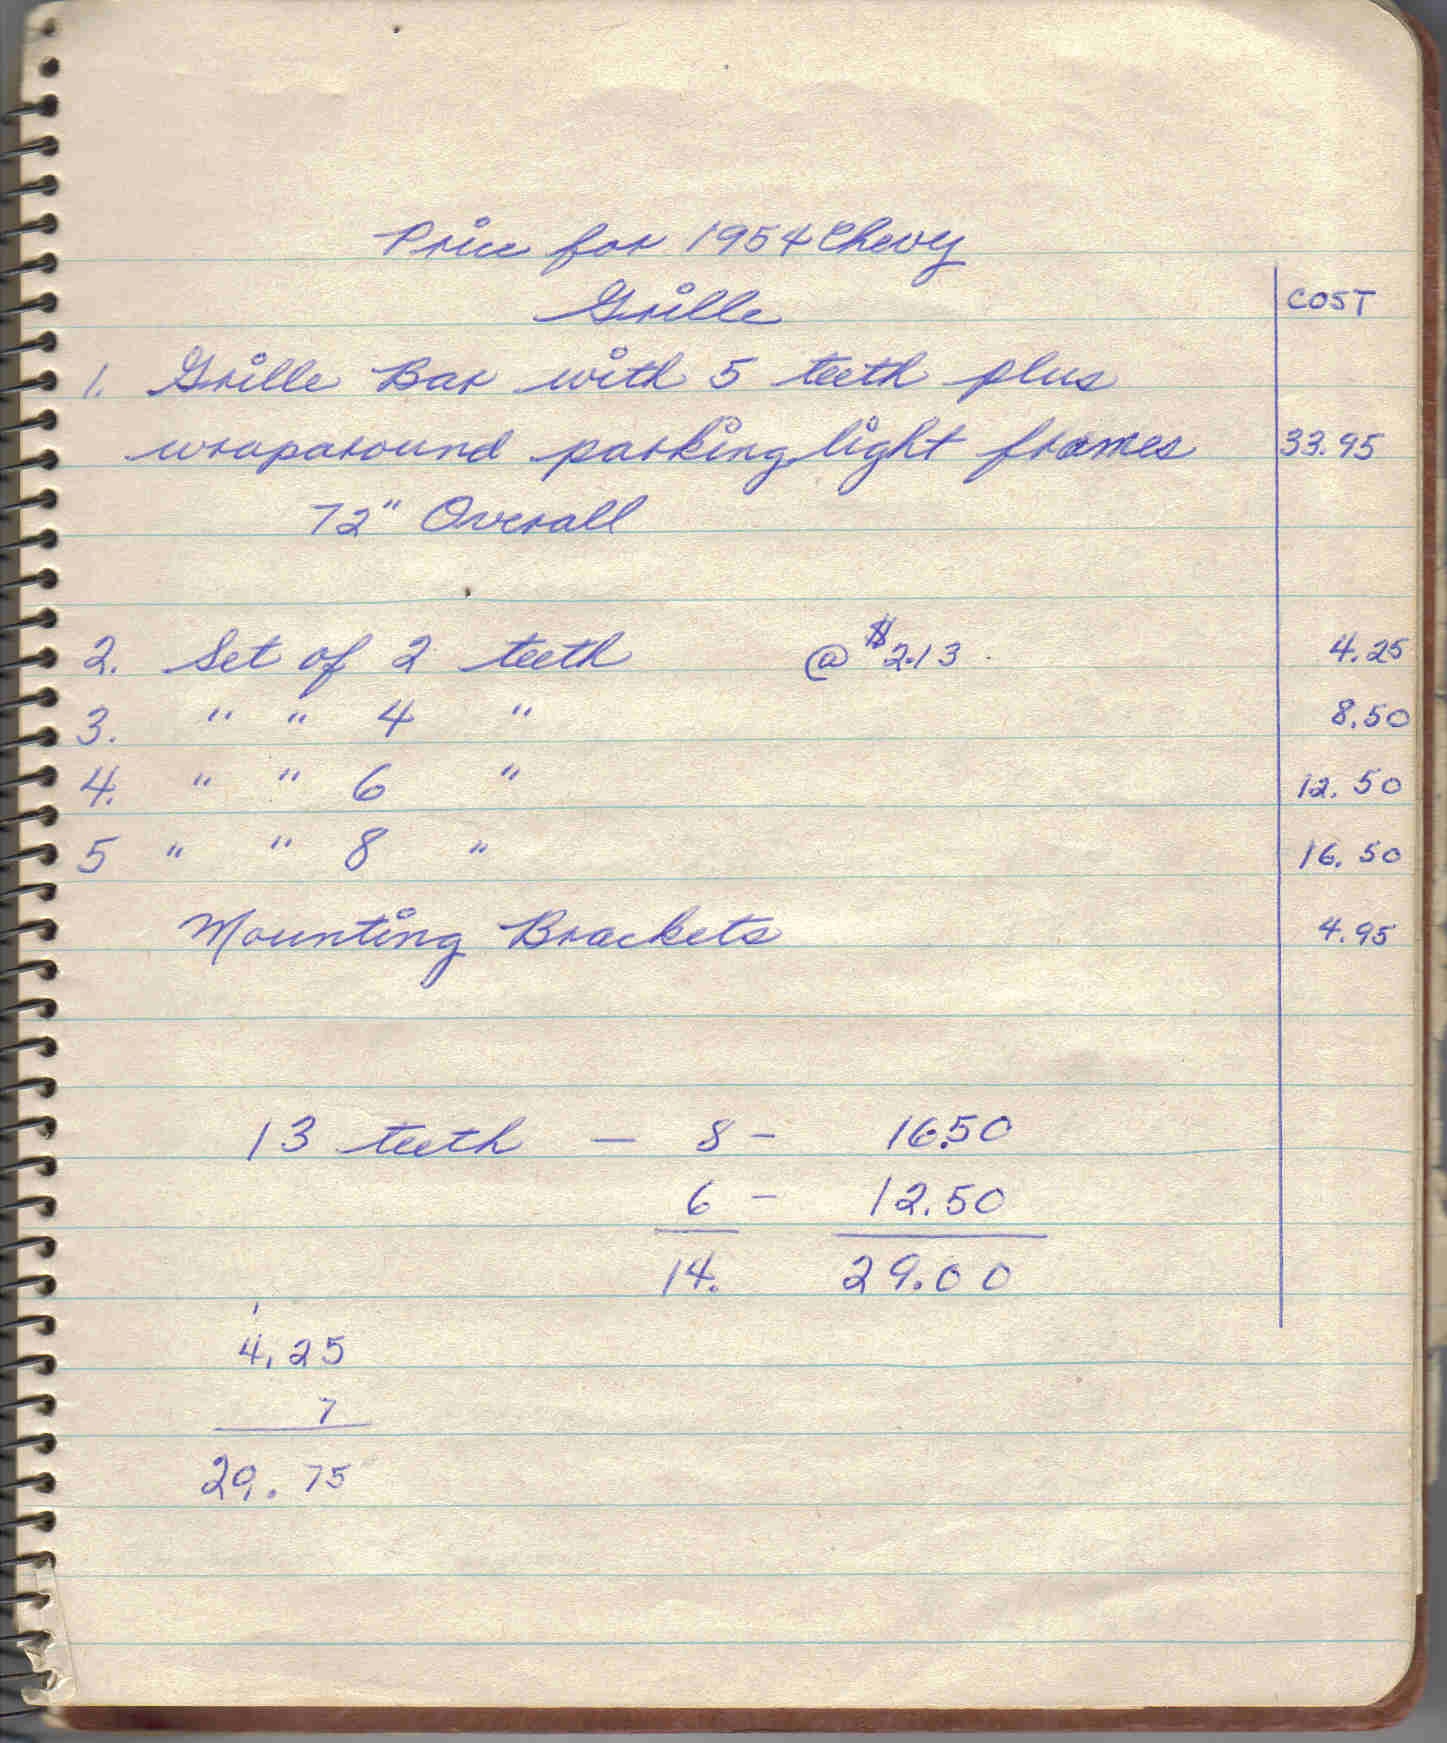 Price for 1954 Chevy
Grille
COST
1. Grille Bar with 5 teeth plus
wraparound parking light frames 33.95
72" Overall
2. Set of 2 teeth @ $2.13 4.25
3. " " 4 " 8.50
4. " " 6 " 12.50
5 " " 8 " 16.50
Mounting Brackets 4.95
13 teeth — 8 - 16.50
6 - 12.50
14. 29.00
4.25
7
29.75